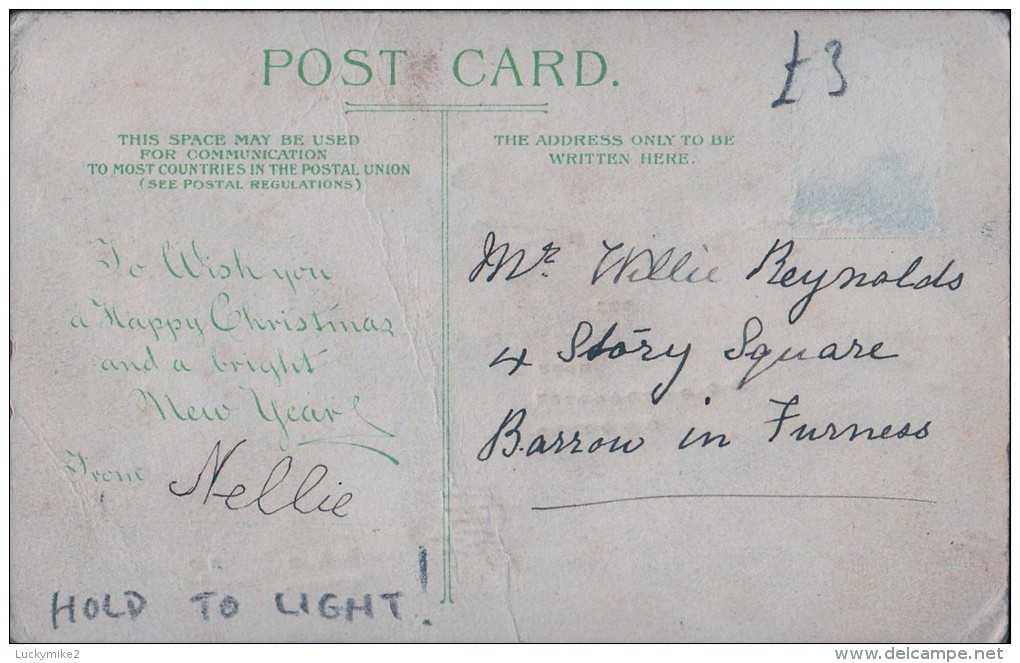 POST CARD.
£3
THIS SPACE MAY BE USED
FOR COMMUNICATION
TO MOST COUNTRIES IN THE POSTAL UNION
(SEE POSTAL REGULATIONS)
THE ADDRESS ONLY TO BE
WRITTEN HERE.
To Wish you
a Happy Christmas
and a bright
New Year
From Nellie
Mr. Willie Reynolds
4 Story Square
Barrow in Furness
HOLD TO LIGHT!
Luckymike2
www.delcampe.net